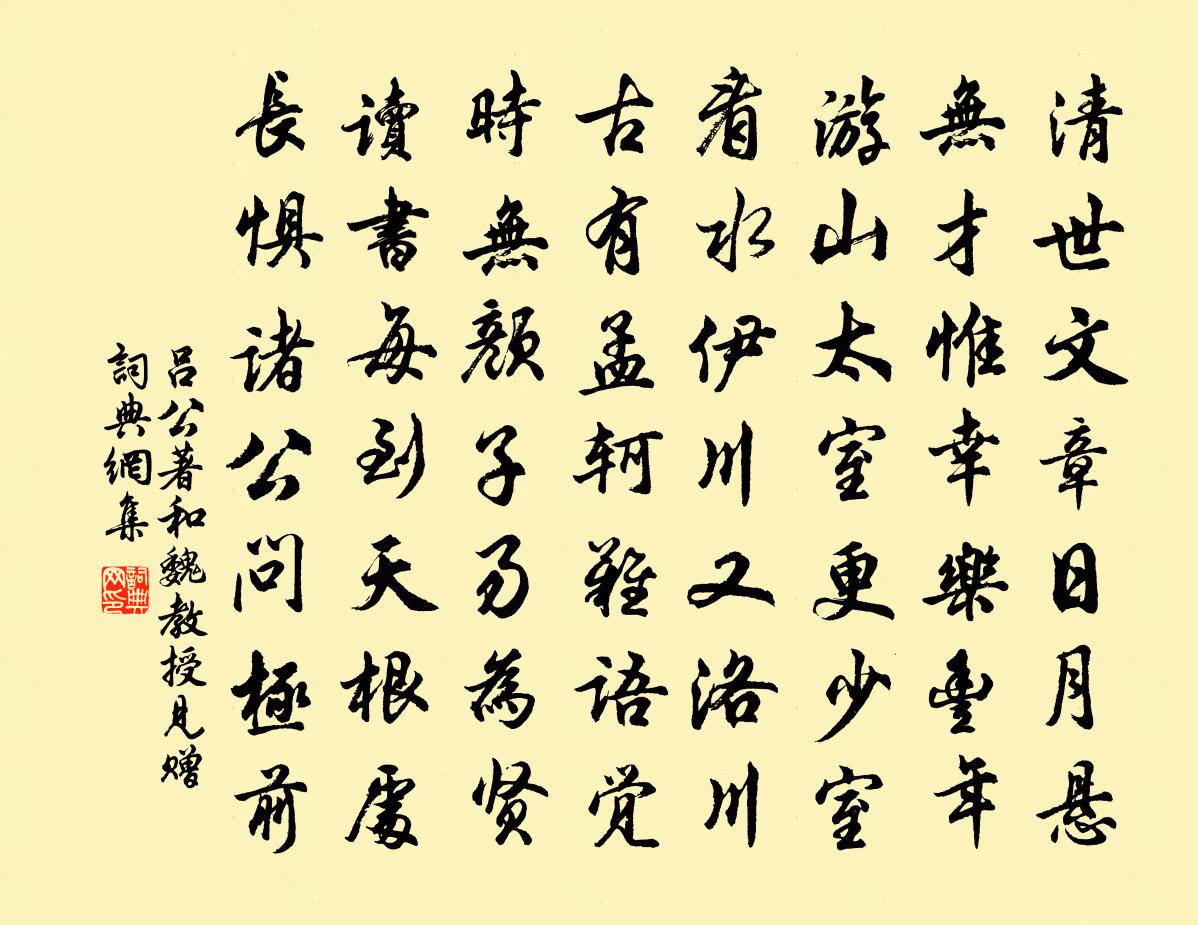 清世文章日月悬
無才惟幸樂豊年
游山太室更少室
看水伊川又洛川
古有孟軻難語觉
時無顔子易為贤
讀書每到天根處
長惧諸公問極前
吕公著和魏教授見赠
詞典網集
詞典
网印